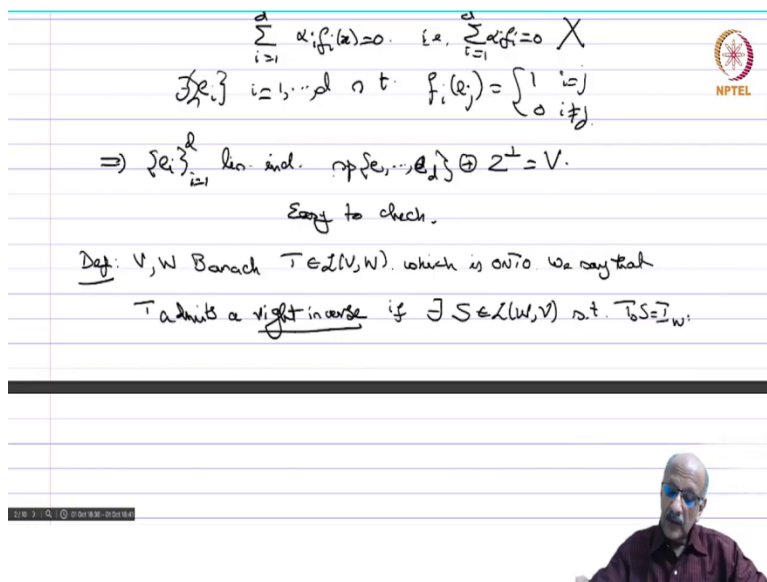 d d
∑ αᵢfᵢ(x)=0. i.e, ∑ αᵢfᵢ=0 X
i=1 i=1
∃{eᵢ} i=1,..,d s t. fᵢ(eⱼ) = { 1 i=j
0 i≠j.
NPTEL
⇒ {eᵢ}ᵈᵢ₌₁ lin. ind. sp{e,..,e_d} ⊕ Z^⊥ = V.
Easy to check.
Def: V, W Banach T∈L(V,W). which is ONTO. we say that
T admits a right inverse if ∃ S∈L(W,V) s.t. T∘S=I_W.
2/10 01 Oct 18:38 - 01 Oct 18:41